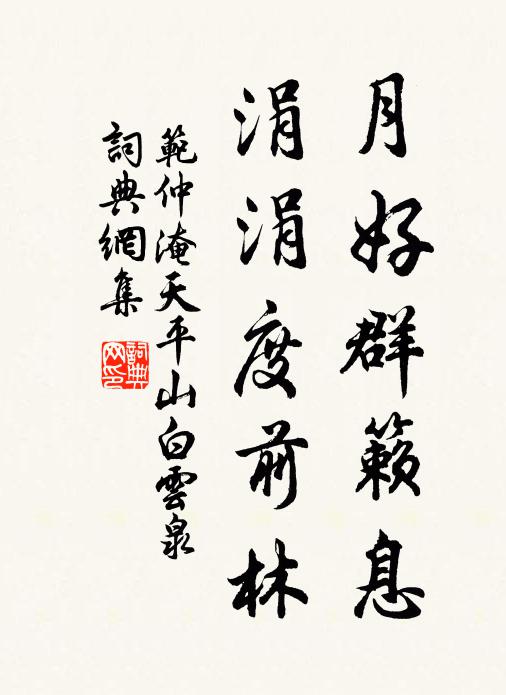 月好群籟息
涓涓度前林
範仲淹天平山白雲泉
詞典網集
詞典
网印